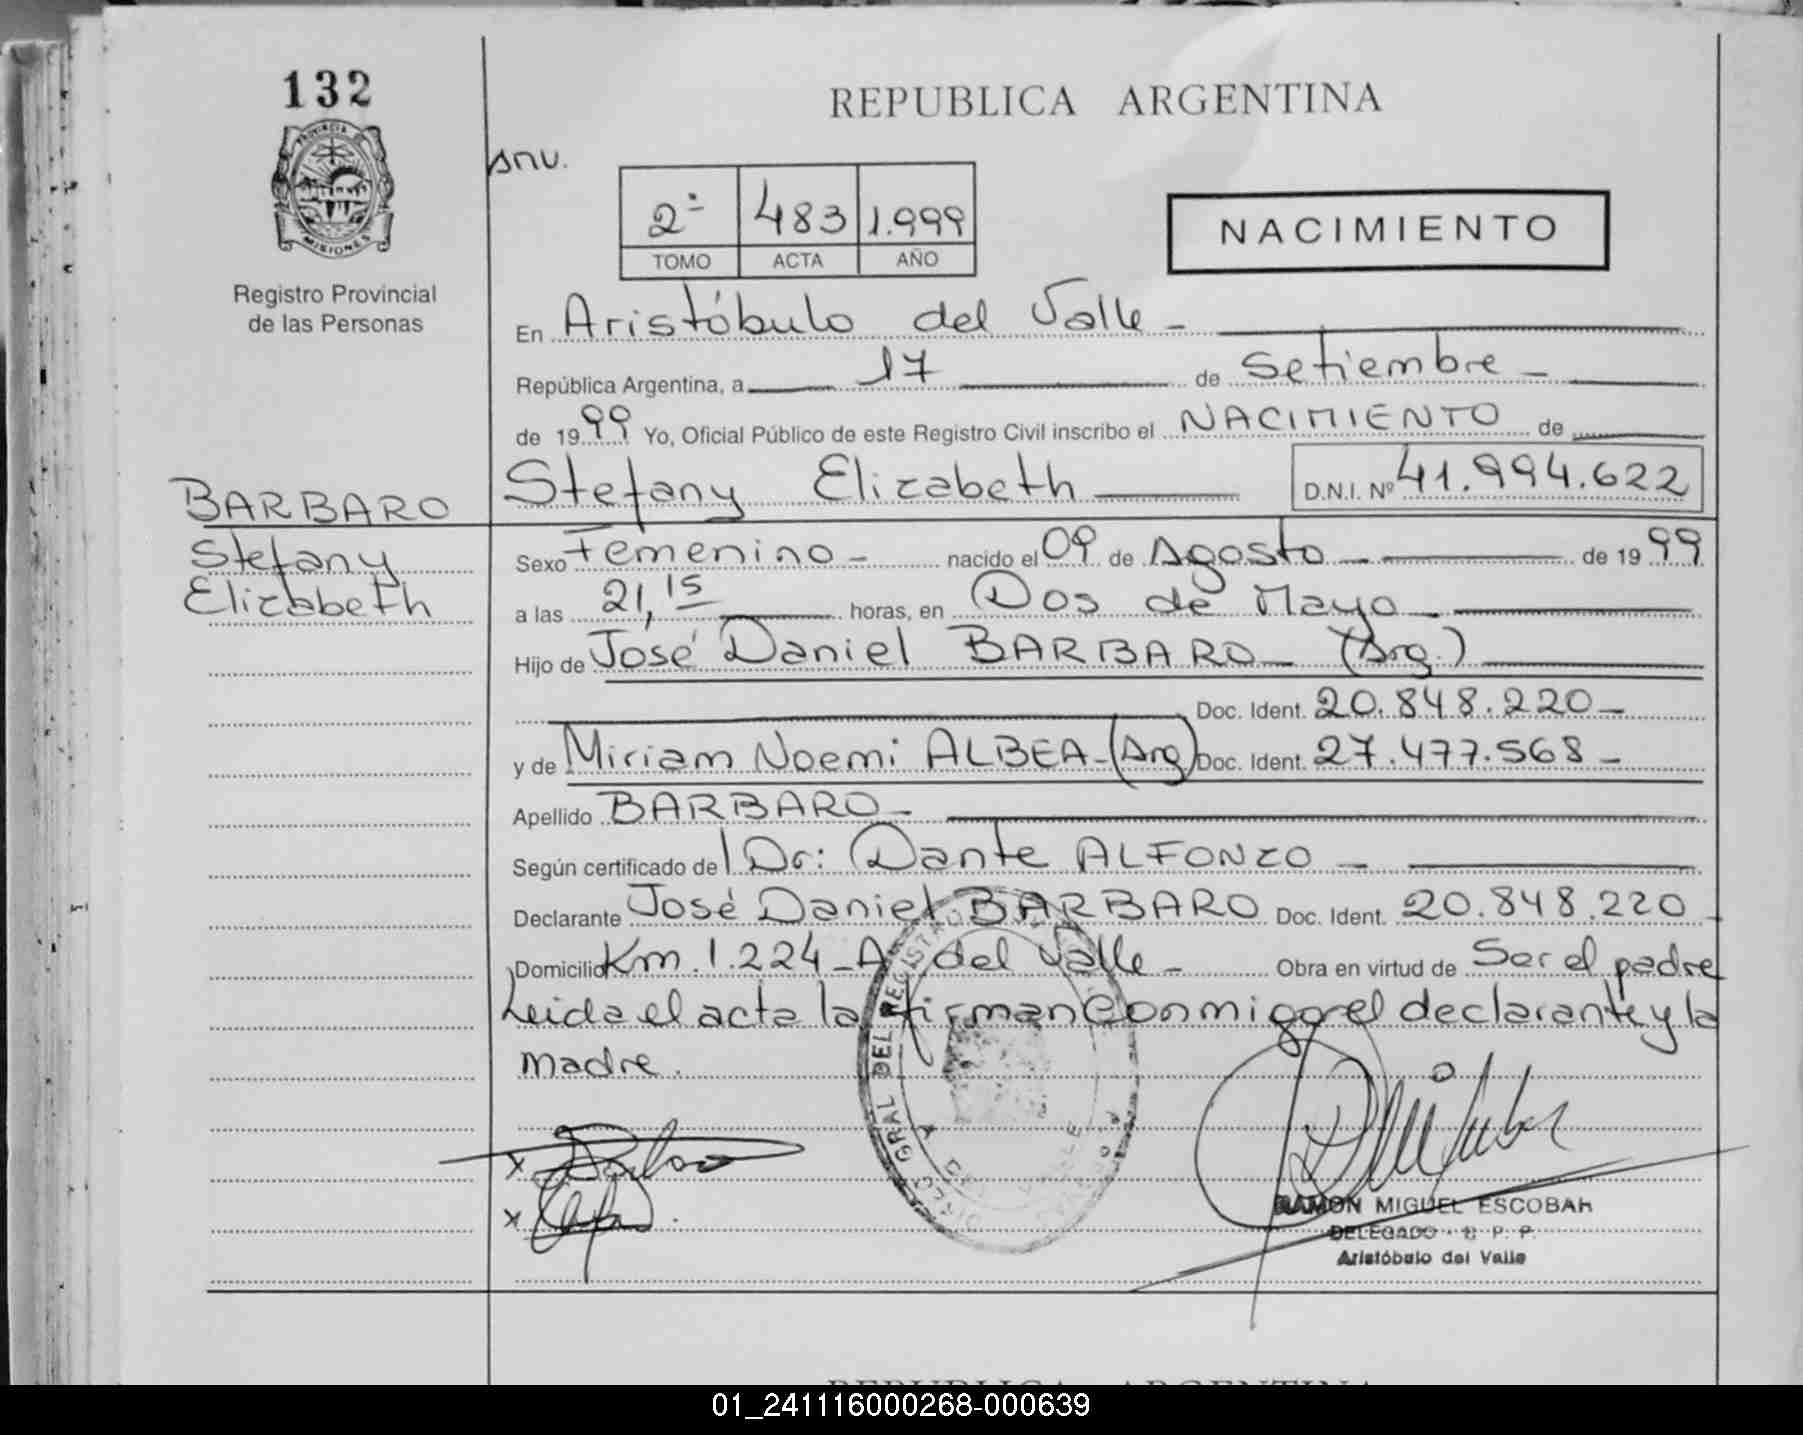 132
REPUBLICA ARGENTINA
PROVINCIA DE
MISIONES
Registro Provincial
de las Personas
2º 483 1.999
TOMO ACTA AÑO
NACIMIENTO
En Aristóbulo del Valle -
República Argentina, a 17 de Setiembre -
de 1999 Yo, Oficial Público de este Registro Civil inscribo el NACIMIENTO de
BARBARO
Stefany
Elizabeth
Stefany Elizabeth D.N.I. Nº 41.994.622
Sexo Femenino - nacido el 09 de Agosto - de 1999
a las 21,15 horas, en Dos de Mayo -
Hijo de José Daniel BARBARO - (Arg.)
Doc. Ident. 20.848.220 -
y de Miriam Noemi ALBEA - (Arg) Doc. Ident. 27.477.568 -
Apellido BARBARO -
Según certificado del Dr: Dante ALFONZO -
Declarante José Daniel BARBARO Doc. Ident. 20.848.220 -
Domicilio Km. 1.224 - A. del Valle - Obra en virtud de Ser el padre
Leida el acta la firman conmigo el declarante y la
madre.
x
x
RAMON MIGUEL ESCOBAR
DELEGADO - R. P. P.
Aristóbulo del Valle
01_241116000268-000639